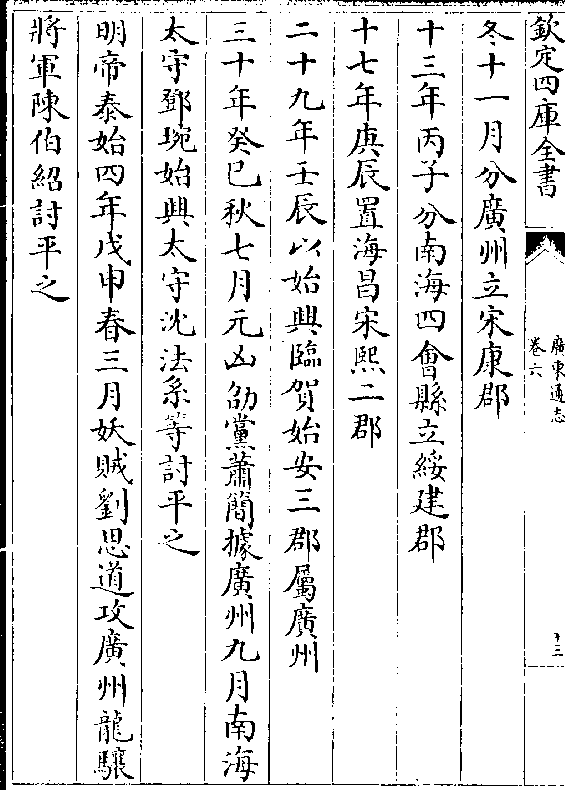 欽定四庫全書
廣東通志
卷六
十三
冬十一月分廣州立宋康郡
十三年丙子分南海四會縣立綏建郡
十七年庚辰置海昌宋熙二郡
二十九年壬辰以始興臨賀始安三郡屬廣州
三十年癸巳秋七月元凶劭黨蕭簡據廣州九月南海
太守鄧琬始興太守沈法系等討平之
明帝泰始四年戊申春三月妖賊劉思道攻廣州龍驤
將軍陳伯紹討平之